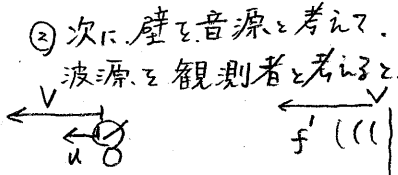 ② 次に、壁を音源と考えて、
波源を観測者と考えると、
V V
u O f' (((